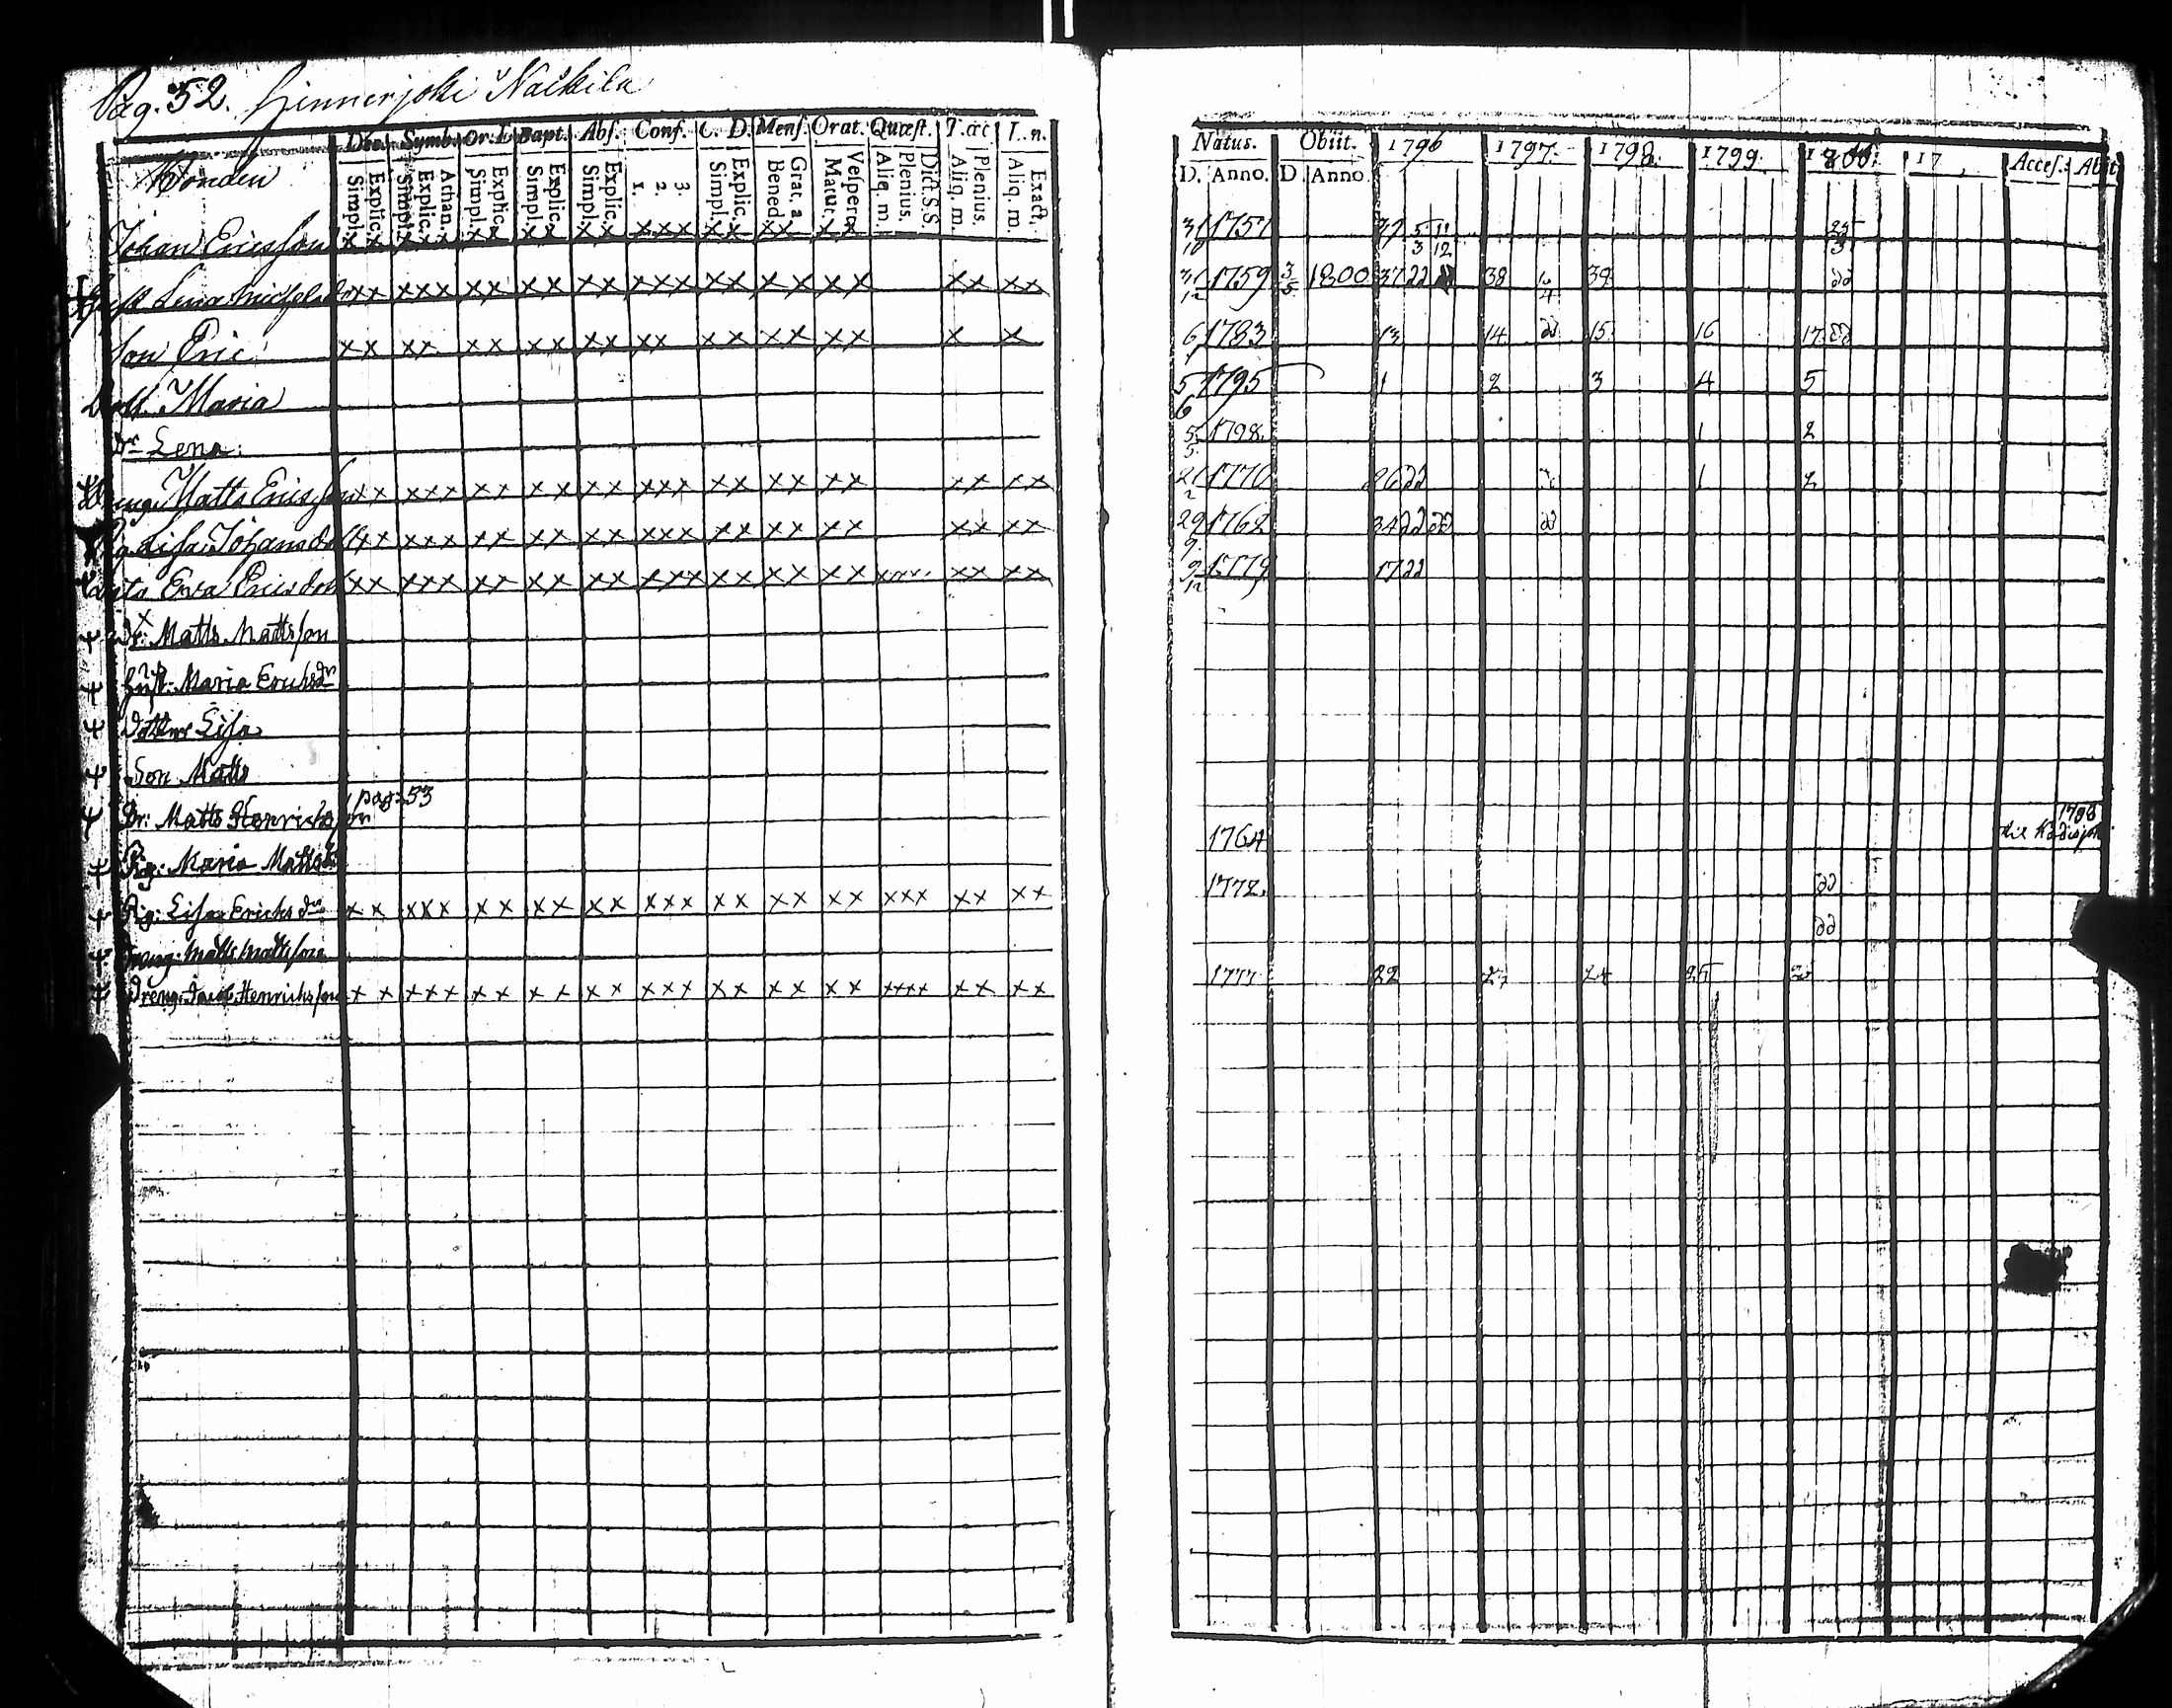 Pag. 52. Hinnerjoki Nackila
Dec. Symb. Or. D Bapt. Abs. Conf. C. D. Menſ. Orat. Quæſt. T. œc T. n.
Simpl. Explic. Simpl. Explic. Athan. Simpl. Explic. Simpl. Explic. Simpl. Explic. 1. 2. 3. Simpl. Explic. Bened. Grat. a Matut. Veſpere Aliq. m. Plenius. Dict. S.S. Aliq. m. Plenius. Aliq. m. Exact.
Bonden
Johan Ericsson xx xxx xx xx xx xxx xx xx xx
Hust. Lena Michelsd xx xxx xx xx xx xxx xx xx xx xx xx
Son Eric xx xx xx xx xx xx xx xx xx x x
Dott. Maria
Dr Lena
Dreng. Matts Ericsson xx xxx xx xx xx xxx xx xx xx xx xx
Pig. Lisa Johansdott xx xxx xx xx xx xxx xx xx xx xx xx
Eva Ericsdott xx xxx xx xx xx xxx xx xx xx xx xx
Dr: Matts Mattsson
Hust. Maria Erichsdr
Dotter Lisa
Son Matts
pag: 53
Dr: Matts Henrichsson
Pig: Maria Mattsd
Pig: Lisa Erichsdr xx xxx xx xx xx xxx xx xx xx xxx xx xx
Dreng: Matts Mattsson
Dreng: Jacob Henrichsson xx xxx xx xx xx xxx xx xx xx xxxx xx xx
Natus. Obiit. 1796 1797 1798 1799 1800. 17 Acceſ. Abit
D. Anno. D Anno.
31/10 1757 5/3 11/12 25/3
31/12 1759 3/5 1800 37 38 39
6 1783 13 14 15 16 17
5/6 1795 1 2 3 4 5
5/5 1798 1 2
21/2 1770 26 1 2
29/9 1762 34
9/12 1779 17
1764 1798
1772.
1777 22 23 24 25